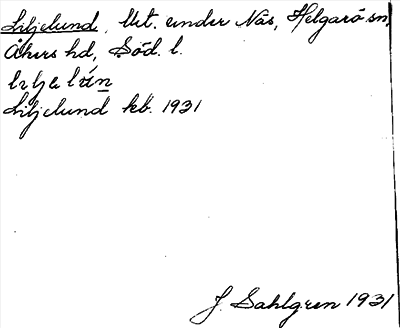 Liljelund, Utt. under Näs, Helgarö sn,
Åkers hd, Söd. l.
Liljelund kb. 1931
J. Sahlgren 1931